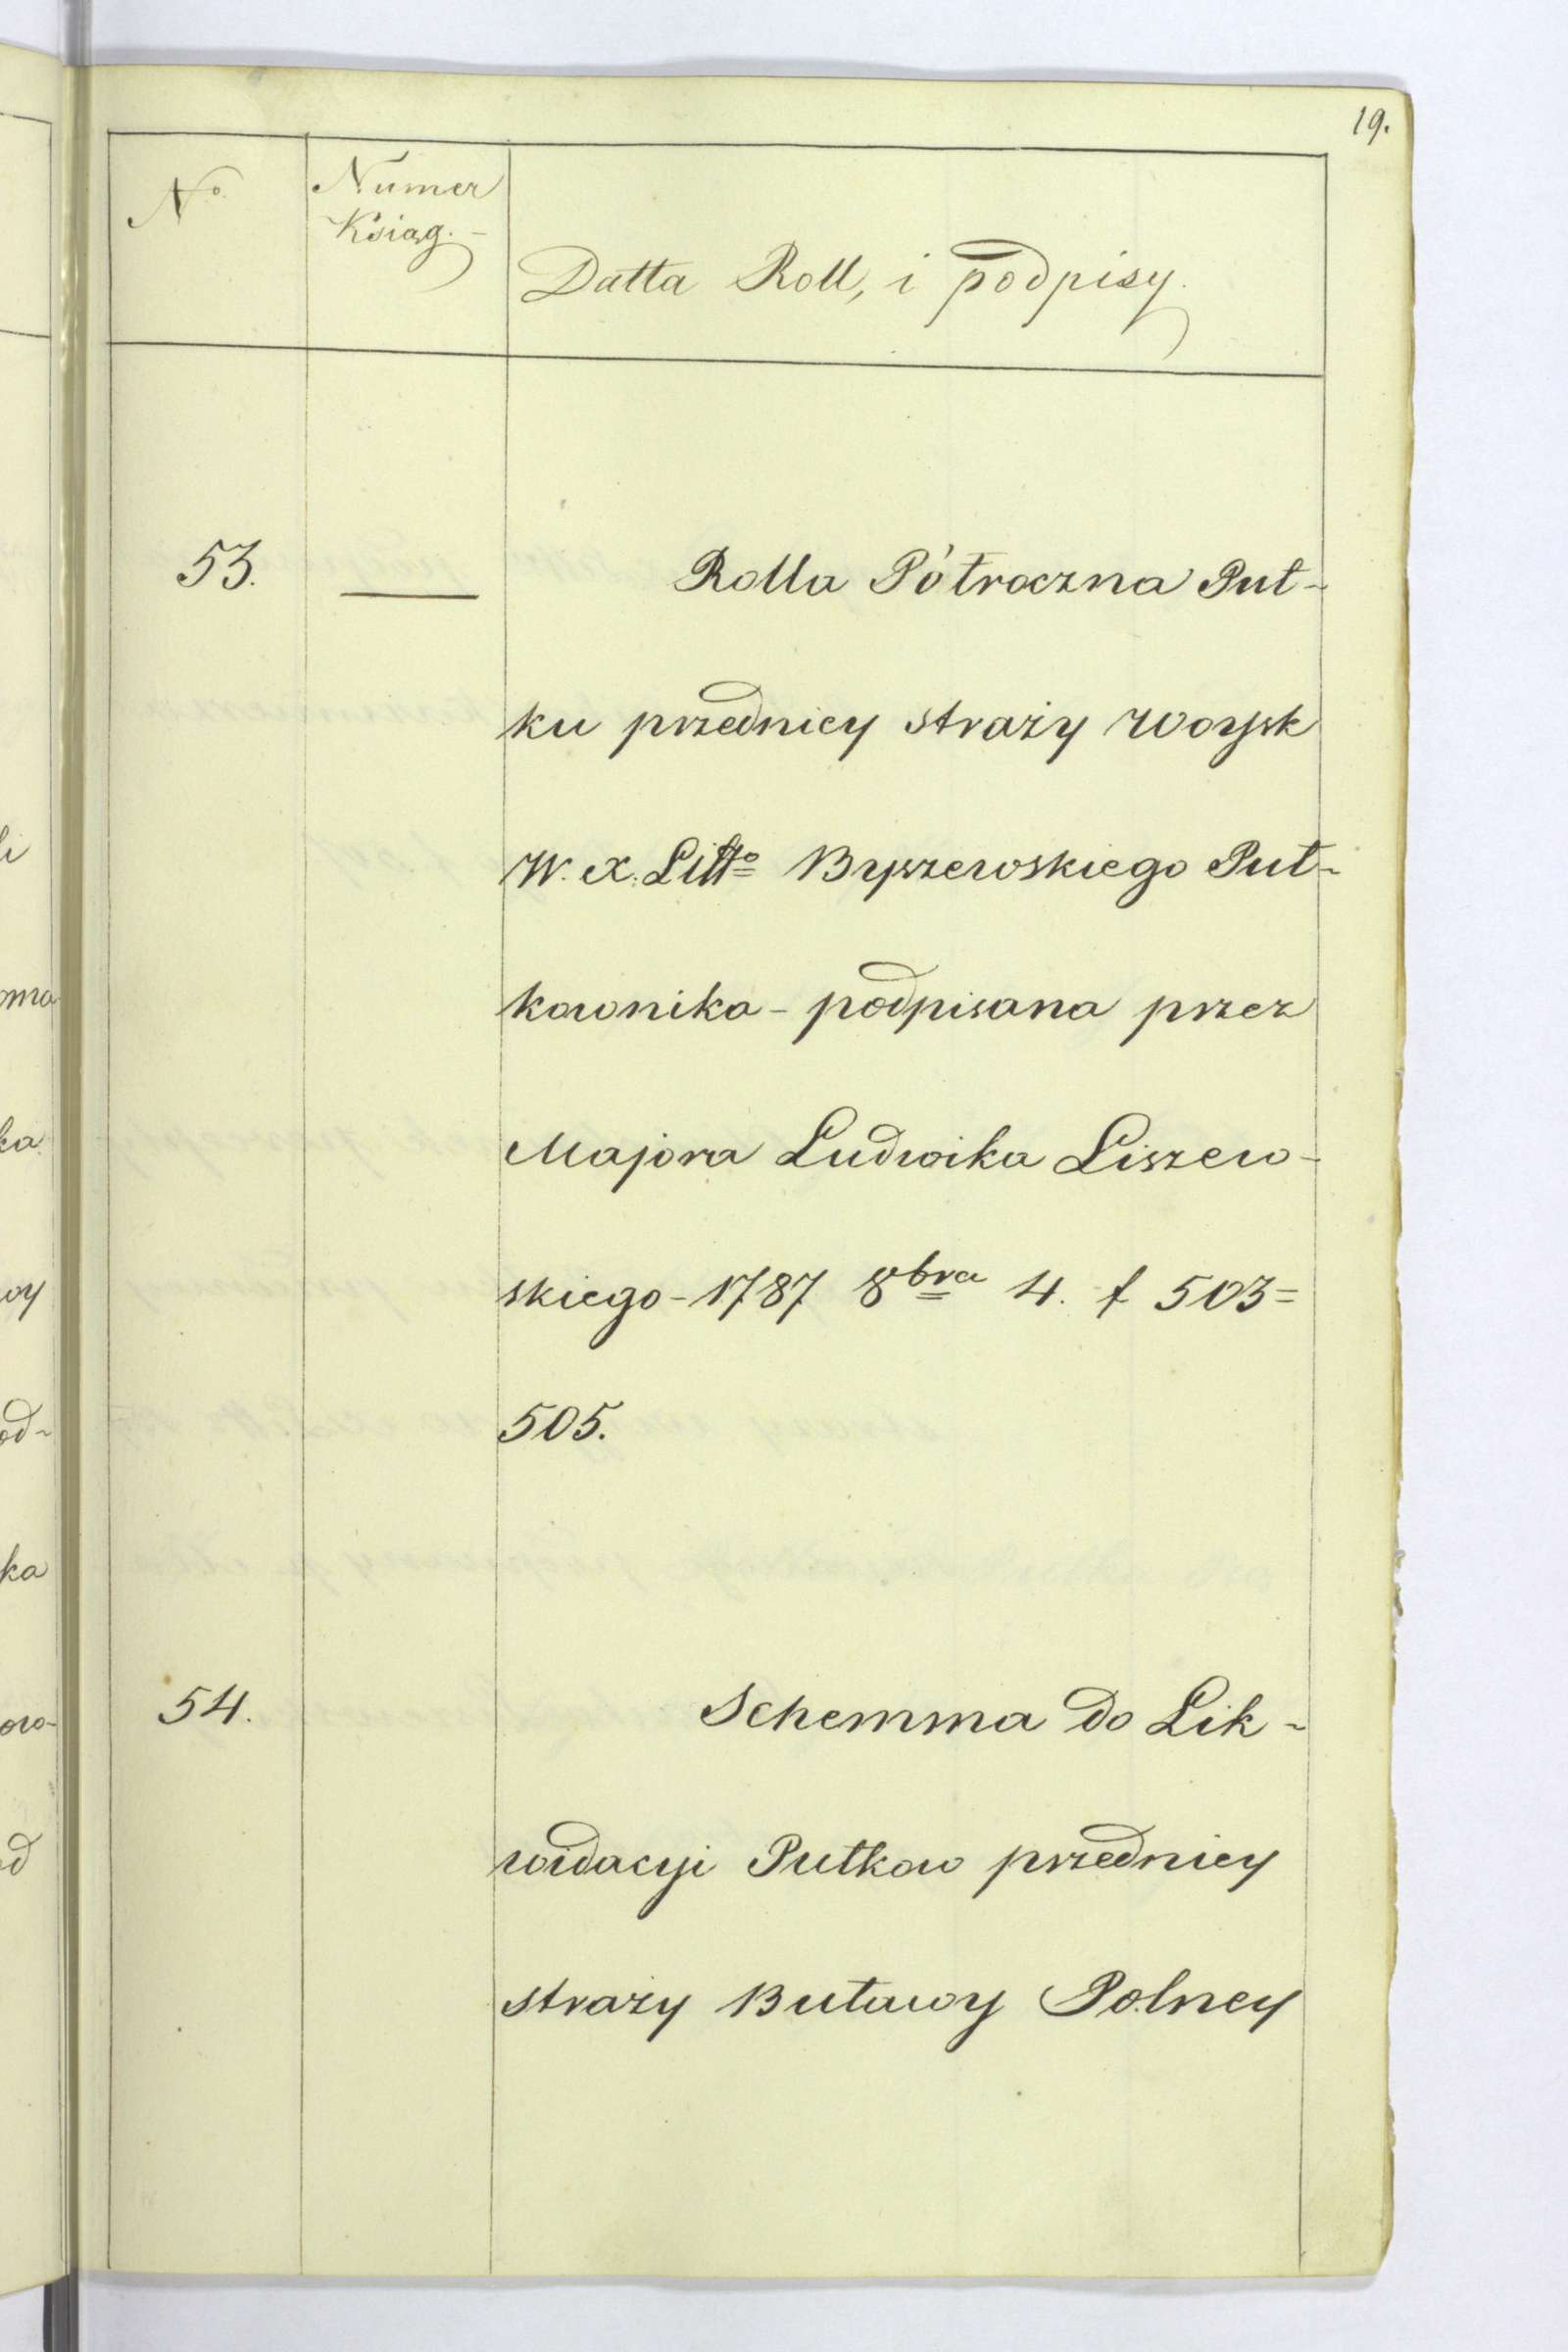 19.
No. Numer Książ.-
Datta Roll, i podpisy.
53. — Rolla Półroczna Puł-
ku przedniey straży Woysk
W. X. Litt° Byszewskiego Puł-
kownika - podpisana przez
Majora Ludwika Liszew-
skiego - 1787 8bra 4. f 503=
505.
54. Schemma do Lik-
widacyi Pułkow przedniey
straży Buławy Polney
li
oma
ka
oy
od-
ka
ow-
d